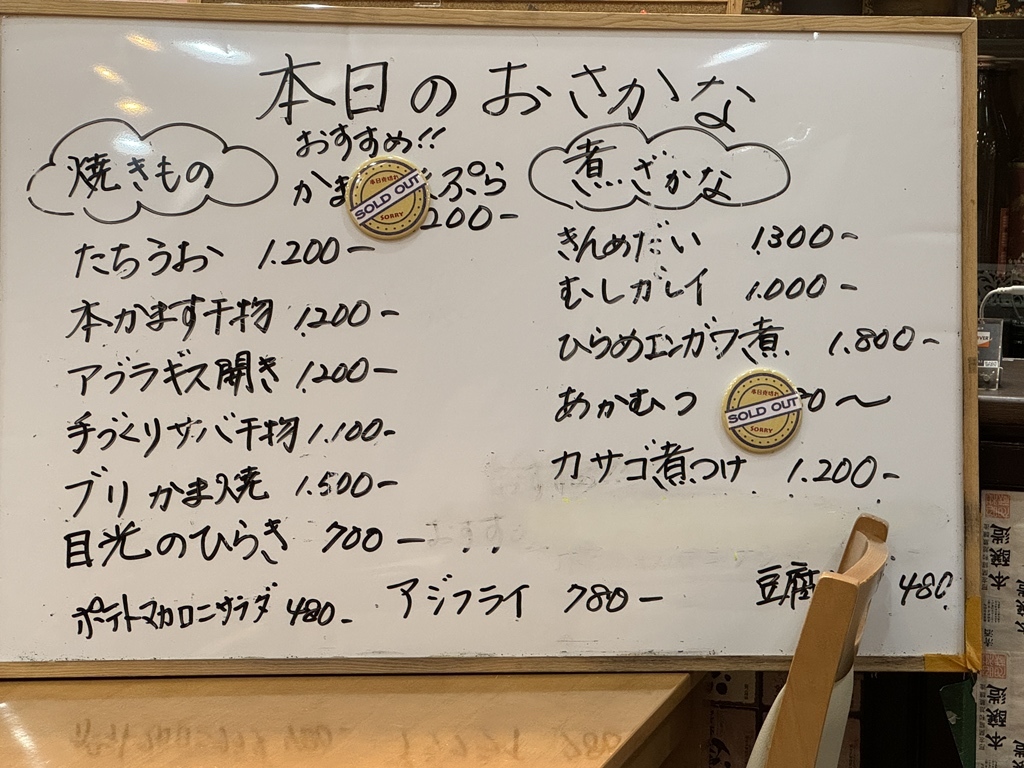 本日のおさかな
焼きもの
おすすめ!!
かま ぷら
200-
たちうお 1.200-
本かます干物 1.200-
アブラギス開き 1.200-
手づくりサバ干物 1.100-
ブリかま焼 1.500-
目光のひらき 700-
ポテトマカロニサラダ 480-
アジフライ 780-
煮ざかな
きんめだい 1.300-
むしガレイ 1.000-
ひらめエンガワ煮 1.800-
あかむつ 0〜
カサゴ煮つけ 1.200-
豆腐 480
本日売切れ
SOLD OUT
SORRY
本日売切れ
SOLD OUT
SORRY
本醸造
本醸造